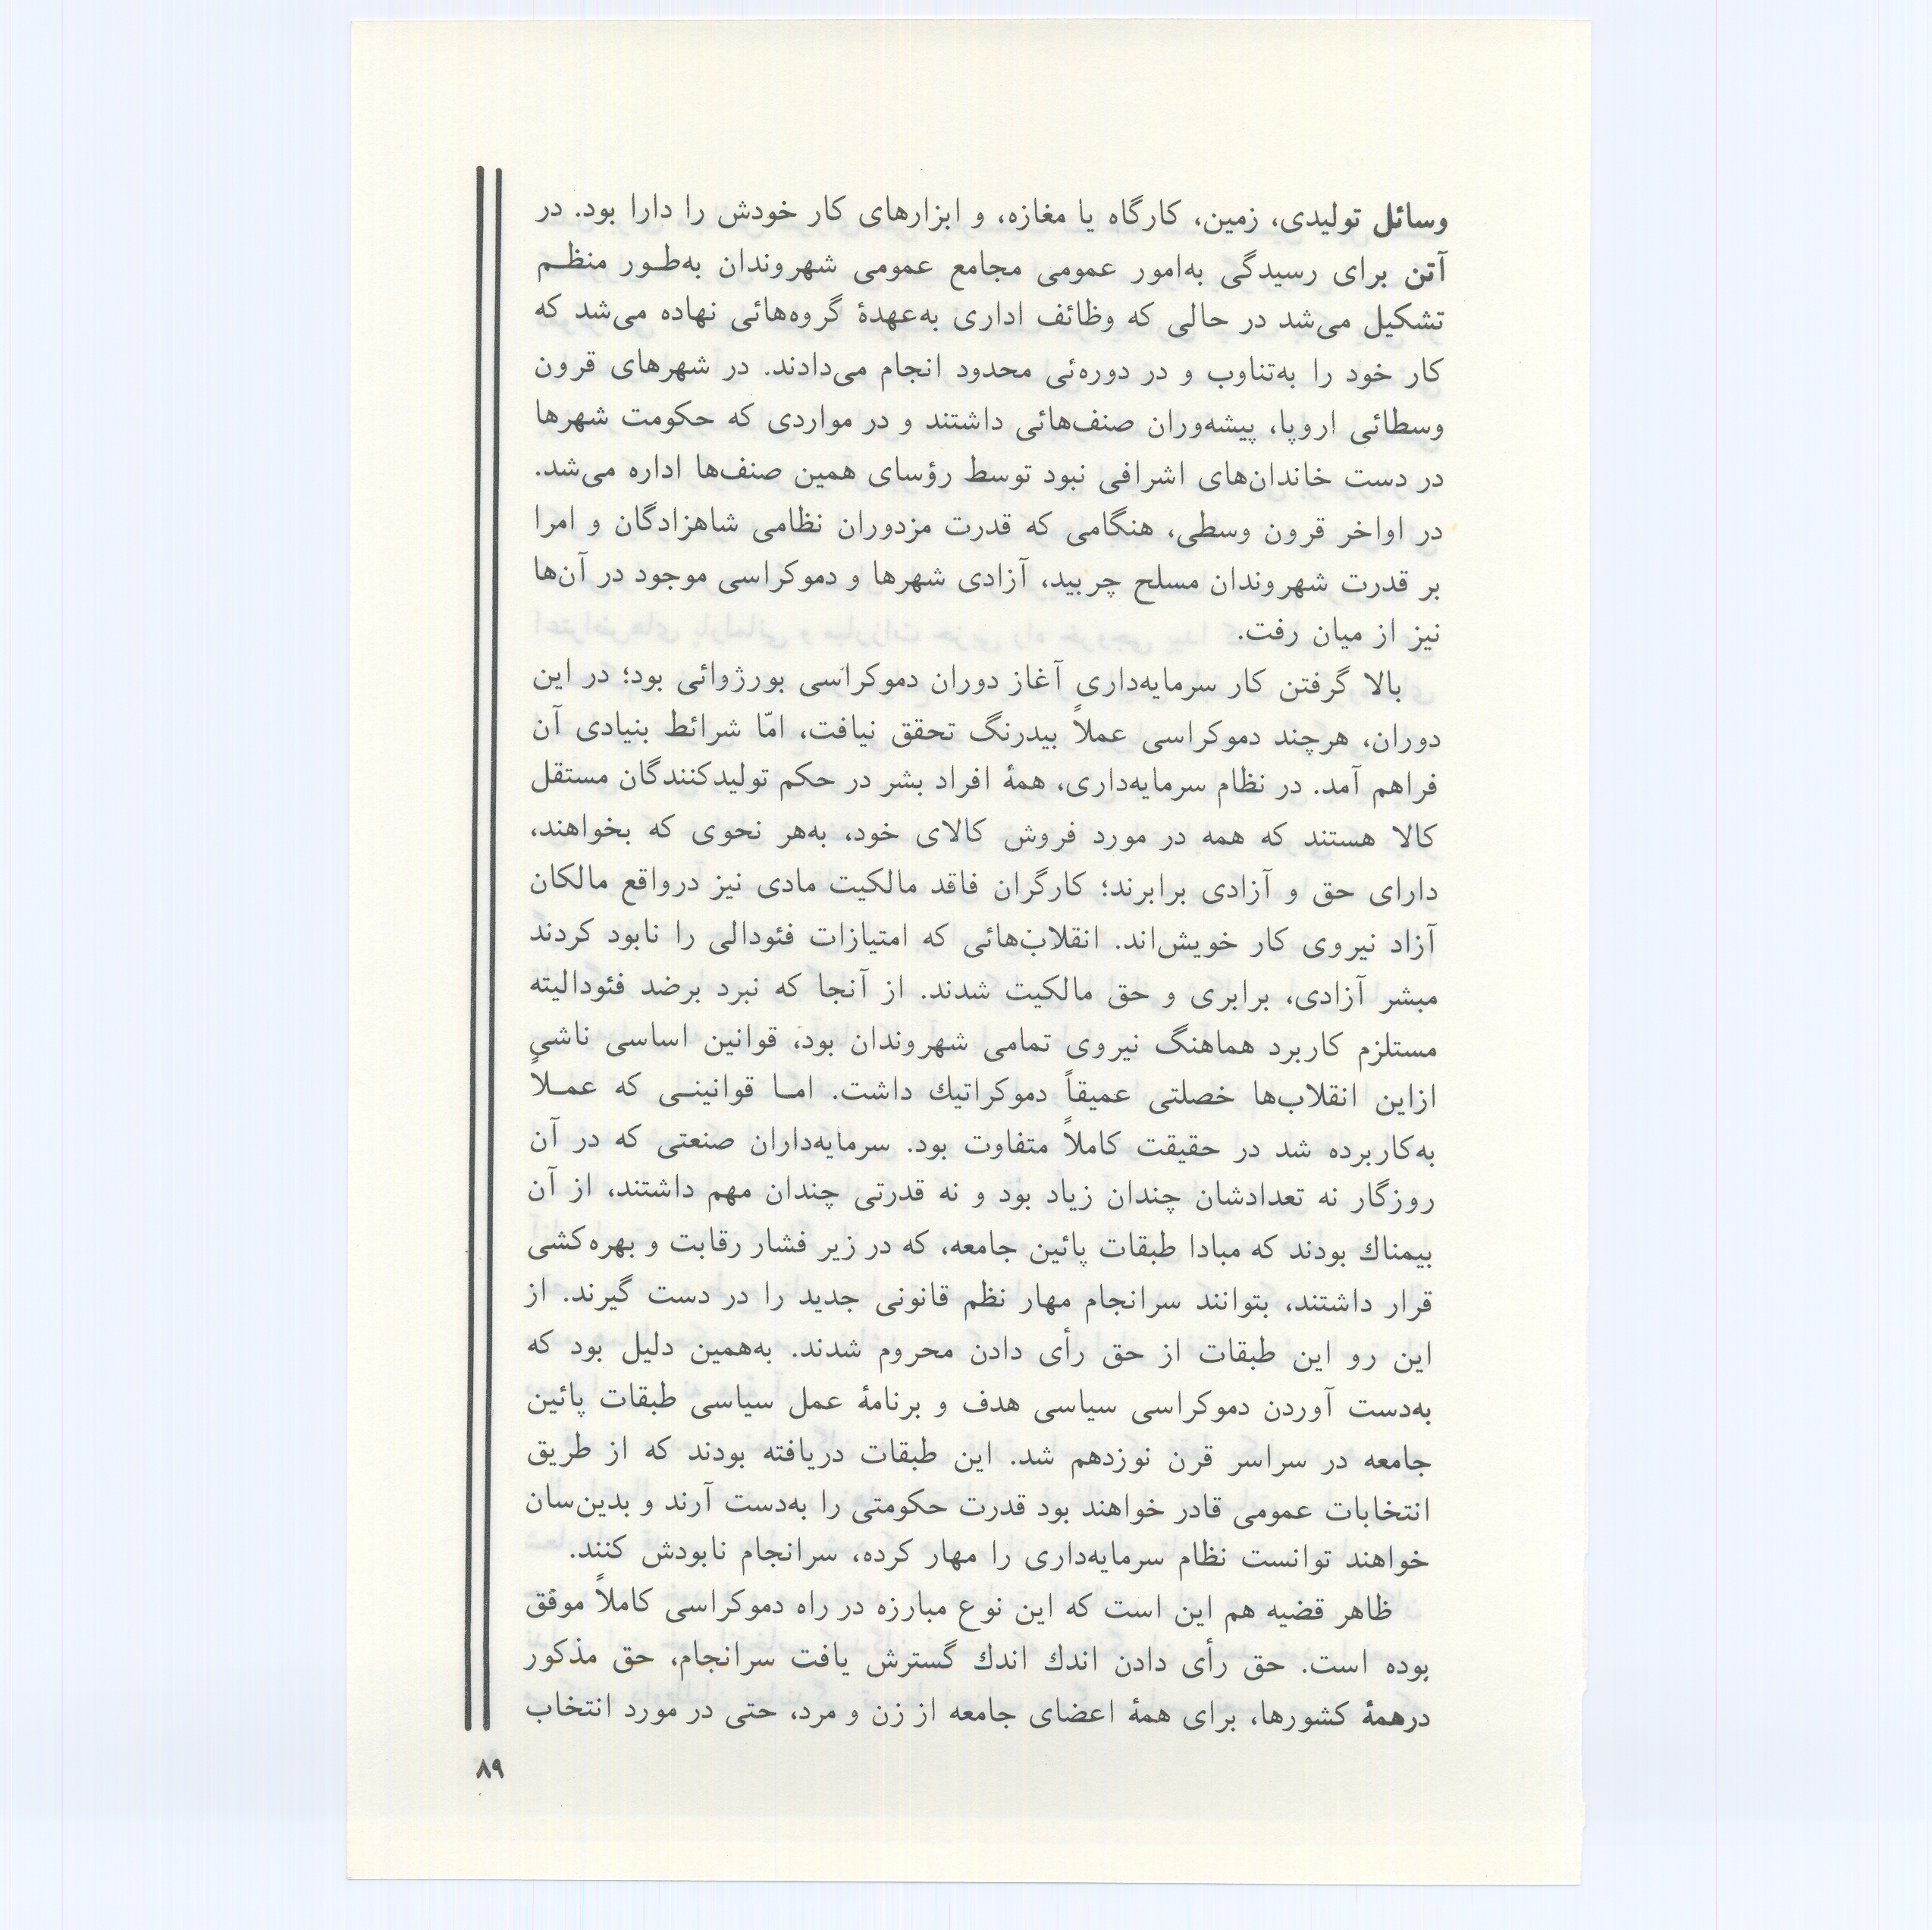 وسائل تولیدی، زمین، کارگاه یا مغازه، و ابزارهای کار خودش را دارا بود. در
آتن برای رسیدگی به‌امور عمومی مجامع عمومی شهروندان به‌طـور منظـم
تشکیل می‌شد در حالی که وظائف اداری به‌عهدهٔ گروه‌هائی نهاده می‌شد که
کار خود را به‌تناوب و در دوره‌ئی محدود انجام می‌دادند. در شهرهای قرون
وسطائی اروپا، پیشه‌وران صنف‌هائی داشتند و در مواردی که حکومت شهرها
در دست خاندان‌های اشرافی نبود توسط رؤسای همین صنف‌ها اداره می‌شد.
در اواخر قرون وسطی، هنگامی که قدرت مزدوران نظامی شاهزادگان و امرا
بر قدرت شهروندان مسلح چربید، آزادی شهرها و دموکراسی موجود در آن‌ها
نیز از میان رفت.
بالا گرفتن کار سرمایه‌داری آغاز دوران دموکراسی بورژوائی بود؛ در این
دوران، هرچند دموکراسی عملاً بیدرنگ تحقق نیافت، امّا شرائط بنیادی آن
فراهم آمد. در نظام سرمایه‌داری، همهٔ افراد بشر در حکم تولیدکنندگان مستقل
کالا هستند که همه در مورد فروش کالای خود، به‌هر نحوی که بخواهند،
دارای حق و آزادی برابرند؛ کارگران فاقد مالکیت مادی نیز درواقع مالکان
آزاد نیروی کار خویش‌اند. انقلاب‌هائی که امتیازات فئودالی را نابود کردند
مبشر آزادی، برابری و حق مالکیت شدند. از آنجا که نبرد برضد فئودالیته
مستلزم کاربرد هماهنگ نیروی تمامی شهروندان بود، قوانین اساسی ناشی
ازاین انقلاب‌ها خصلتی عمیقاً دموکراتیك داشت. امـا قوانینـی که عمـلاً
به‌کاربرده شد در حقیقت کاملاً متفاوت بود. سرمایه‌داران صنعتی که در آن
روزگار نه تعدادشان چندان زیاد بود و نه قدرتی چندان مهم داشتند، از آن
بیمناك بودند که مبادا طبقات پائین جامعه، که در زیر فشار رقابت و بهره‌کشی
قرار داشتند، بتوانند سرانجام مهار نظم قانونی جدید را در دست گیرند. از
این رو این طبقات از حق رأی دادن محروم شدند. به‌همین دلیل بود که
به‌دست آوردن دموکراسی سیاسی هدف و برنامهٔ عمل سیاسی طبقات پائین
جامعه در سراسر قرن نوزدهم شد. این طبقات دریافته بودند که از طریق
انتخابات عمومی قادر خواهند بود قدرت حکومتی را به‌دست آرند و بدین‌سان
خواهند توانست نظام سرمایه‌داری را مهار کرده، سرانجام نابودش کنند.
ظاهر قضیه هم این است که این نوع مبارزه در راه دموکراسی کاملاً موفق
بوده است. حق رأی دادن اندك اندك گسترش یافت سرانجام، حق مذکور
درهمهٔ کشورها، برای همهٔ اعضای جامعه از زن و مرد، حتی در مورد انتخاب
۸۹